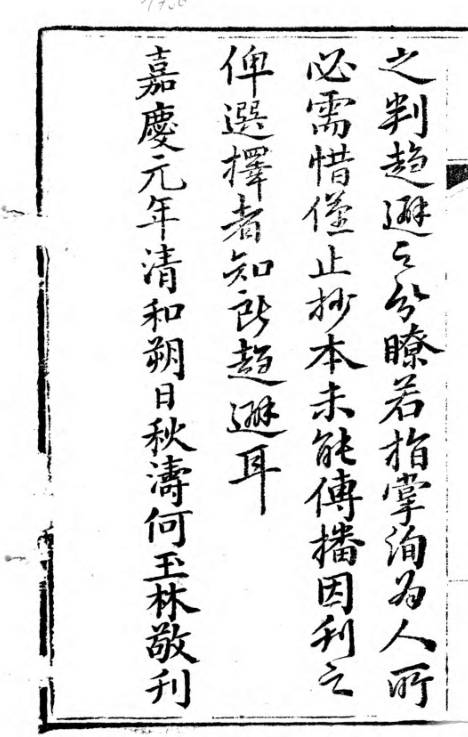 之判趋避之分瞭若指掌洵為人所
必需惜僅止抄本未能傳播因刊之
俾選擇者知所趋避耳
嘉慶元年清和朔日秋濤何玉林敬刊